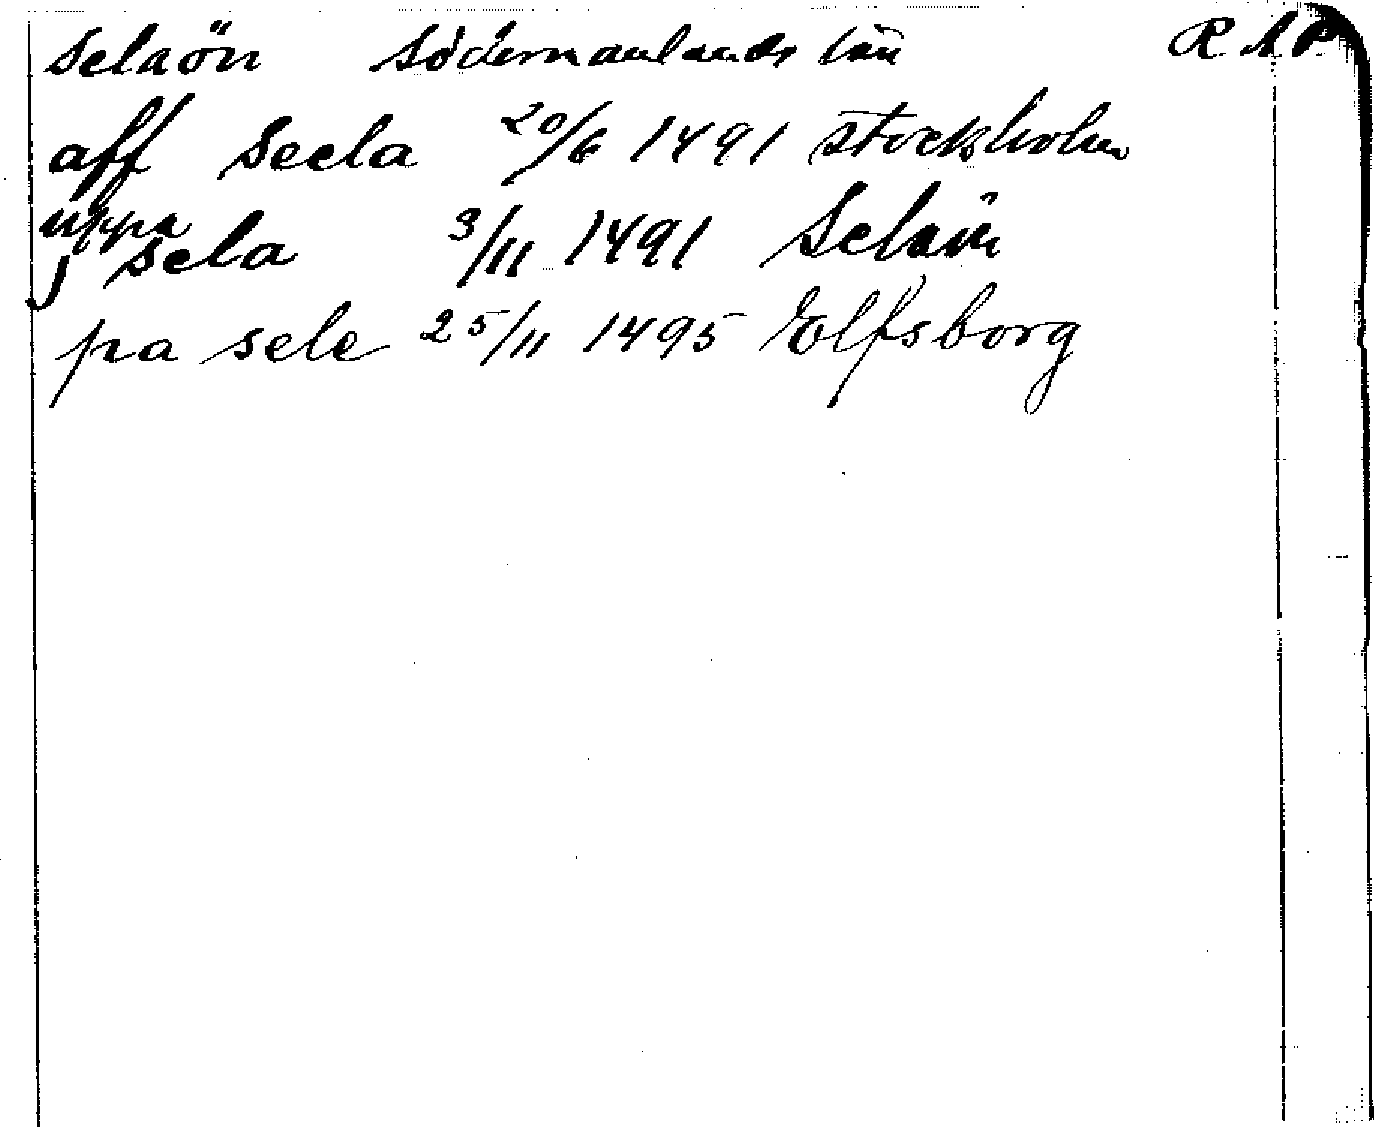 Selaön Södermanlands län RAP
aff Seela 20/6 1491 Stockholm
uppa
j Sela 3/11 1491 Selaön
pa sele 25/11 1495 Elfsborg